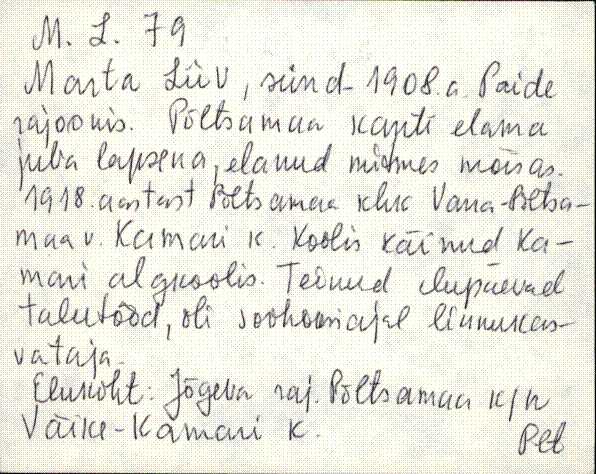 M. L. 79
Marta Liiv, sünd. 1908. a. Paide
rajoonis. Põltsamaa kanti elama
juba lapsena, elanud mitmes mõisas.
1918. aastast Põltsamaa khk Vana-Põltsa-
maa v. Kamari k. Koolis käinud Ka-
mari algkoolis. Teinud elupäevad
talutööd, oli sovhoosiajal linnukas-
vataja.
Elukoht: Jõgeva raj. Põltsamaa k/n
Väike-Kamari k.
Plt